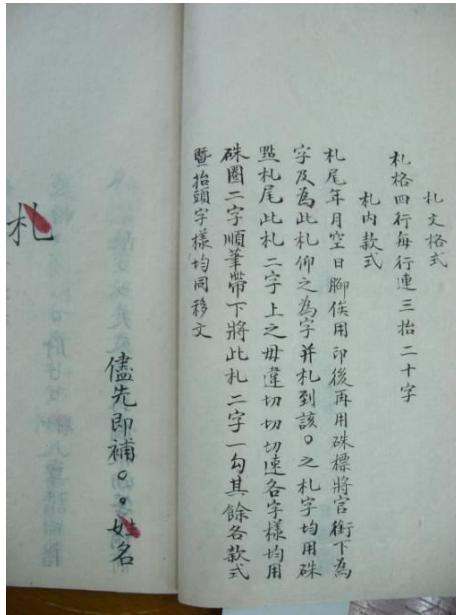 札文格式
札格四行每行連三抬二十字
札内款式
札尾年月空日腳俟用印後再用硃標將官銜下為
字及為此札仰之為字并札到該〇之札字均用硃
點札尾此札二字上之毋違切切切速各字樣均用
硃圈二字順筆帶下將此札二字一勾其餘各款式
暨抬頭字樣均同移文
札
儘先即補〇〇姓名